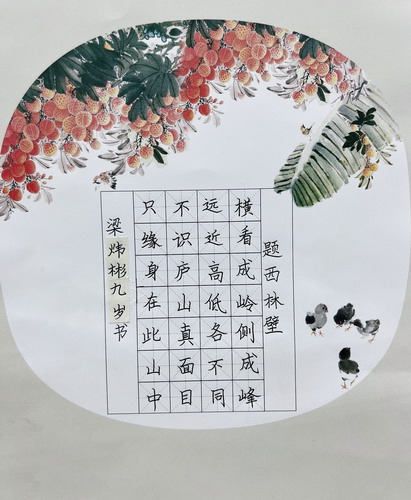 题西林壁
横看成岭侧成峰
远近高低各不同
不识庐山真面目
只缘身在此山中
梁炜彬九岁书